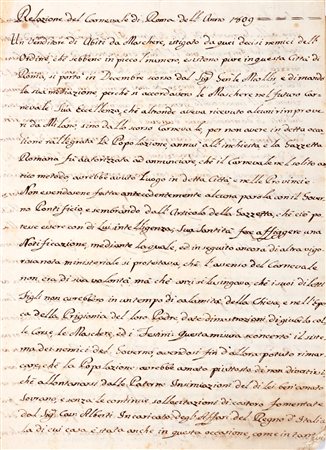 Relazione del Carnevale di Roma dell'Anno 1809
Un Venditore di Abiti da Maschere, istigato da quei decisi nemici dell'
Ordine, che sebbene in picciol numero, esistono pure in questa Città di
Roma, si portò in Decembre scorso dal Sig.r Gen.le Miollis, e diman-
dò la sua mediazione perchè si accordassero le Maschere nel futuro Car-
nevale. Sua Eccellenza, che altronde aveva ricevuto alcuni rimprove-
ri da Milano, sino dallo scorso Carnevale, per non avere in detta occa-
sione rallegrata la Popolazione, annuì all'inchiesta, e la Gazzetta
Romana fù autorizzata ad annunciare, che il Carnevale nel solito an-
tico metodo, avrebbe avuto Luogo in detta Città, e nelle Provincie
Non essendosene fatta antecedentemente alcuna parola con il Gover-
no Pontificio, e sembrando dall'Articolo della Gazzetta, che ciò po-
tesse esser con di Lui intelligenza, Sua Santità fece affiggere una
Notificazione, mediante la quale, ed in seguito ancora di altra vigo-
rosa nota ministeriale si protestava, che l'avvento del Carnevale
non era di sua volontà, ma che anzi si lusingava, che i suoi diletti
Figli non avrebbero in un tempo di calamità della Chiesa, e nell'Epo-
ca della Prigionia del loro Padre, date dimostrazioni di giubilo col-
le Corse, le Maschere, ed i Festini. Questa misura sconcertò il siste-
ma dei nemici del Governo, avendosi fin d'allora potuto rimar-
care, che la Popolazione avrebbe amato piuttosto di non divertirsi,
che allontanarsi dalle Paterne Insinuazioni del di lei ben amato
Sovrano, e senza le continue sollecitazioni di costoro fomentate
dal Sig.r Cav. Alberti Incaricato degli Affari del Regno d'Italia
la di cui casa è stata anche in questa occasione, come in tant'altre